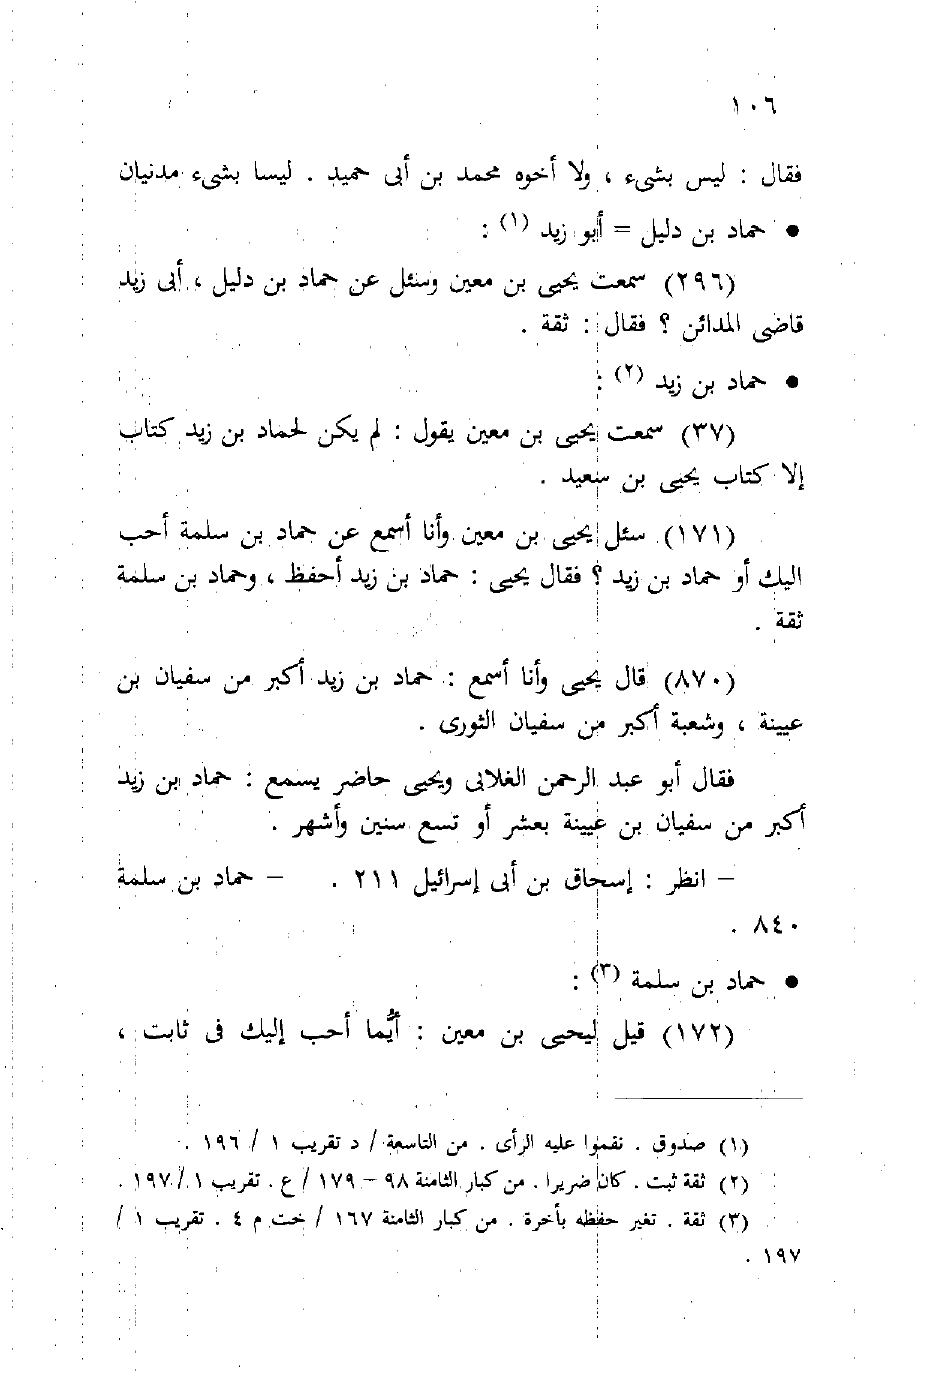 ١٠٦
فقال : ليس بشىء ، ولا أخوه محمد بن أبى حميد . ليسا بشىء مدنيان
● حماد بن دليل = أبو زيد (١) :
(٢٩٦) سمعت يحيى بن معين وسئل عن حماد بن دليل ، أبى زيد
قاضى المدائن ؟ فقال : ثقة .
● حماد بن زيد (٢) :
(٣٧) سمعت يحيى بن معين يقول : لم يكن لحماد بن زيد كتاب
إلا كتاب يحيى بن سعيد .
(١٧١) سئل يحيى بن معين وأنا أسمع عن حماد بن سلمة أحب
اليك أو حماد بن زيد ؟ فقال يحيى : حماد بن زيد أحفظ ، وحماد بن سلمة
ثقة .
(٨٧٠) قال يحيى وأنا أسمع : حماد بن زيد أكبر من سفيان بن
عيينة ، وشعبة أكبر من سفيان الثورى .
فقال أبو عبد الرحمن الغلابى ويحيى حاضر يسمع : حماد بن زيد
أكبر من سفيان بن عيينة بعشر أو تسع سنين وأشهر .
– انظر : إسحاق بن أبى إسرائيل ٢١١ . – حماد بن سلمة
٨٤٠ .
● حماد بن سلمة (٣) :
(١٧٢) قيل ليحيى بن معين : أيُّما أحب إليك فى ثابت ،
(١) صدوق . نقموا عليه الرأى . من التاسعة / د تقريب ١ / ١٩٦ .
(٢) ثقة ثبت . كان ضريرا . من كبار الثامنة ٩٨ – ١٧٩ / ع . تقريب ١ / ١٩٧ .
(٣) ثقة . تغير حفظه بأخرة . من كبار الثامنة ١٦٧ / خت م ٤ . تقريب ١ /
١٩٧ .